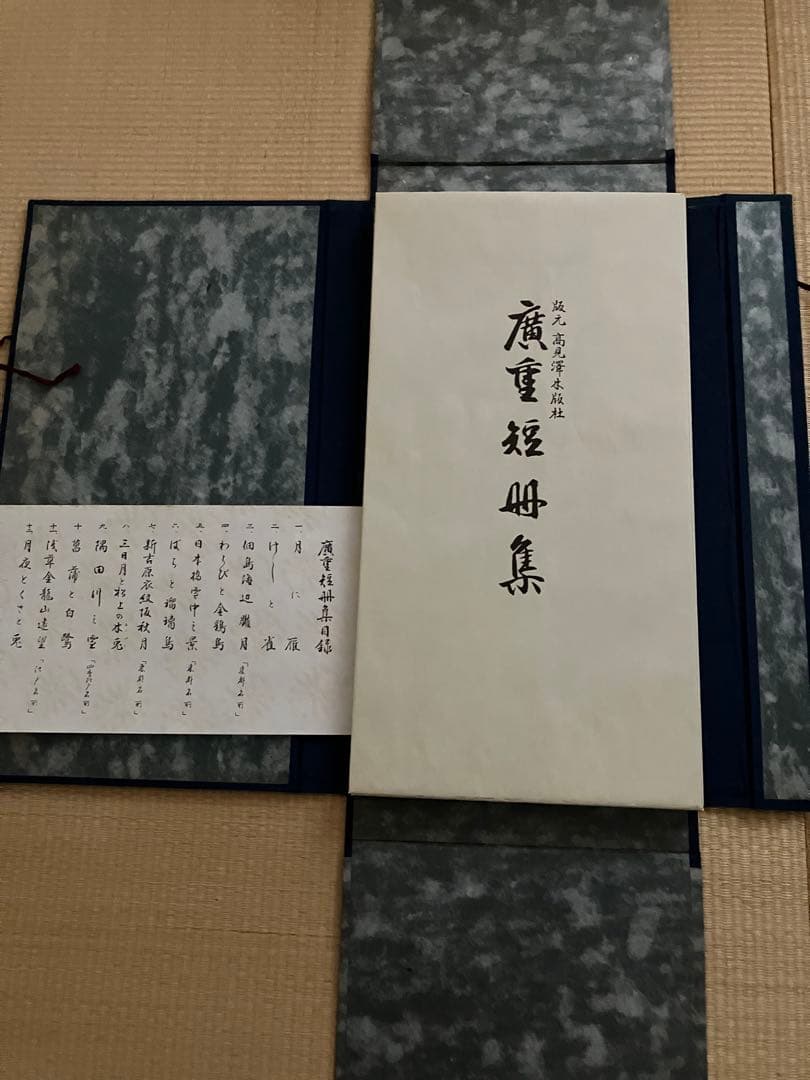 版元 高見澤木版社
廣重短册集
廣重短册集目録
一、月に雁
二、けしと雀
三、佃島海辺朧月「東都名所」
四、わらびと金鶏鳥
五、日本橋雪中之景「東都名所」
六、ばらと瑠璃鳥
七、新吉原衣紋阪秋月「東都名所」
八、三日月と松上の木兎
九、隅田川之雪「四季江戸名所」
十、菖蒲と白鷺
十一、浅草金龍山遠望「江戸名所」
十二、月夜とくさと兎